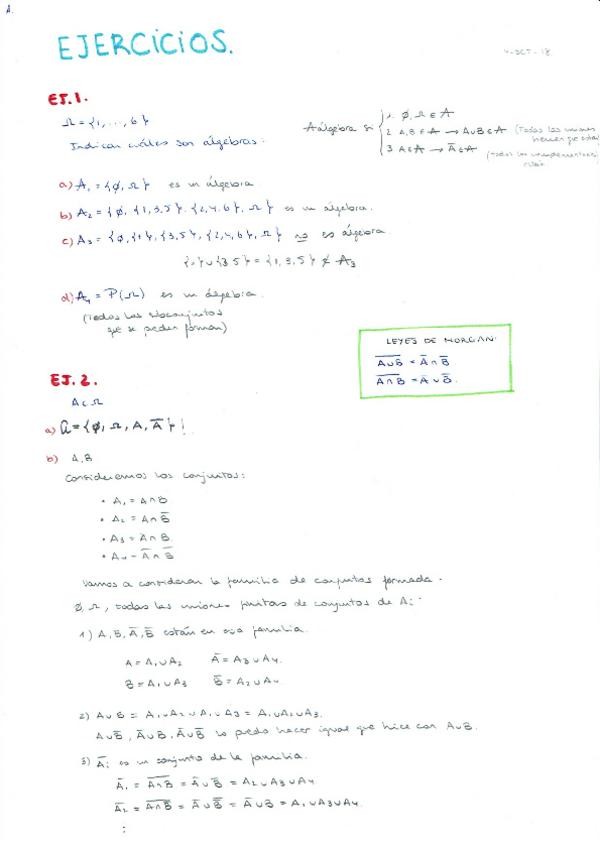 1.
EJERCICIOS.
4-OCT-18
EJ.1.
Ω = {1,...,6}
Indicar cuáles son álgebras:
A álgebra si
1. ∅, Ω ∈ A
2 A,B ∈ A → A∪B ∈ A (Todas las uniones tienen que estar)
3 A ∈ A → A̅ ∈ A (todos los complementarios están)
a) A₁ = {∅, Ω} es un álgebra
b) A₂ = {∅, {1,3,5}, {2,4,6}, Ω} es un álgebra.
c) A₃ = {∅, {1}, {3,5}, {2,4,6}, Ω} no es álgebra
{1} ∪ {3,5} = {1,3,5} ∉ A₃
d) A₄ = P(Ω) es un álgebra.
(Todos los subconjuntos
que se pueden formar)
LEYES DE MORGAN.
A̅∪̅B̅ = A̅ ∩ B̅
A̅∩̅B̅ = A̅ ∪ B̅.
EJ.2.
A ⊂ Ω
a) A = {∅, Ω, A, A̅}
b) A, B
Consideremos los conjuntos:
• A₁ = A∩B
• A₂ = A∩B̅
• A₃ = A∩B
• A₄ = A̅∩B̅
Vamos a considerar la familia de conjuntos formada.
∅, Ω, todas las uniones finitas de conjuntos de Ai
1) A, B, A̅, B̅ están en esa familia.
A = A₁∪A₂ A̅ = A₃∪A₄.
B = A₁∪A₃ B̅ = A₂∪A₄.
2) A∪B = A₁∪A₂∪A₁∪A₃ = A₁∪A₂∪A₃.
A∪B̅, A̅∪B, A̅∪B̅ lo puedo hacer igual que hice con A∪B.
3) A̅i es un conjunto de la familia.
A̅₁ = A̅∩̅B̅ = A̅∪B̅ = A₂∪A₃∪A₄
A̅₂ = A̅∩̅B̅̅ = A̅∪B̅̅ = A̅∪B = A₁∪A₃∪A₄.
⋮